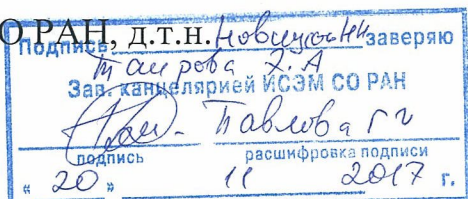 О РАН, д.т.н.
Подпись Новицкого Н.Н. заверяю
Таирова Э.А
Зав. канцелярией ИСЭМ СО РАН
Павлова Г Г
подпись расшифровка подписи
« 20 » 11 2017 г.